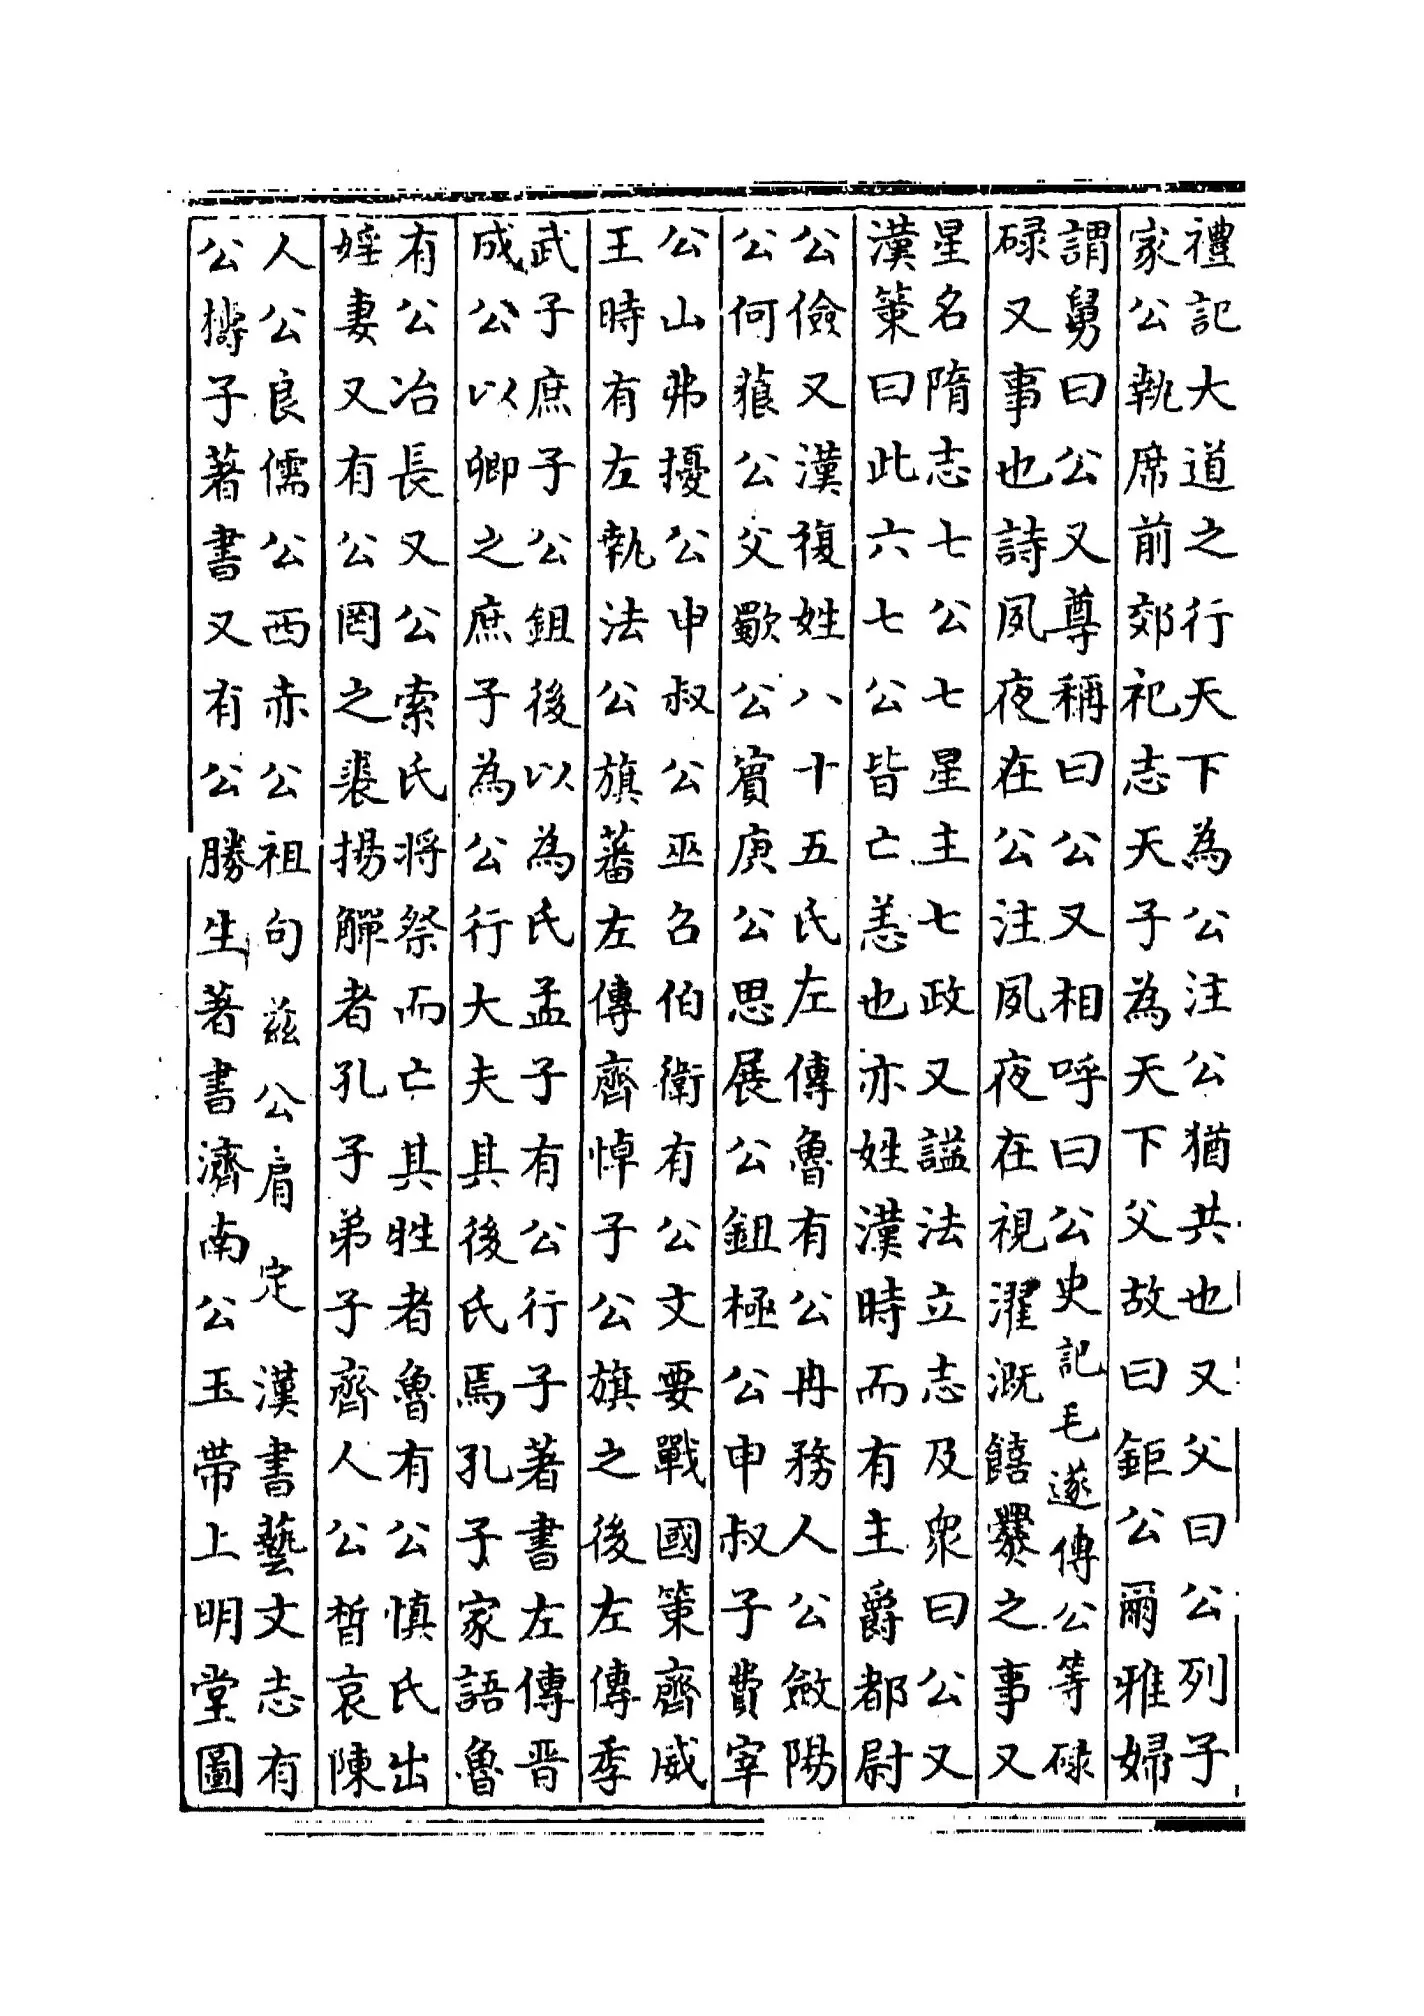 禮記大道之行天下為公注公猶共也又父曰公列子
家公執席前郊祀志天子為天下父故曰鉅公爾雅婦
謂舅曰公又尊稱曰公又相呼曰公史記毛遂傳公等碌
碌又事也詩夙夜在公注夙夜在視濯溉饎爨之事又
星名隋志七公七星主七政又謚法立志及衆曰公又
漢策曰此六七公皆亡恙也亦姓漢時而有主爵都尉
公儉又漢複姓八十五氏左傳魯有公冉務人公斂陽
公何藐公父歜公賓庚公思展公鉏極公申叔子費宰
公山弗擾公申叔公巫召伯衛有公文要戰國策齊威
王時有左執法公旗蕃左傳齊悼子公旗之後左傳季
武子庶子公鉏後以為氏孟子有公行子著書左傳晉
成公以卿之庶子為公行大夫其後氏焉孔子家語魯
有公冶長又公索氏將祭而亡其牲者魯有公慎氏出
婬妻又有公罔之裴揚觶者孔子弟子齊人公晳哀陳
人公良儒公西赤公祖句兹公肩定漢書藝文志有
公檮子著書又有公勝生著書濟南公玉帶上明堂圖